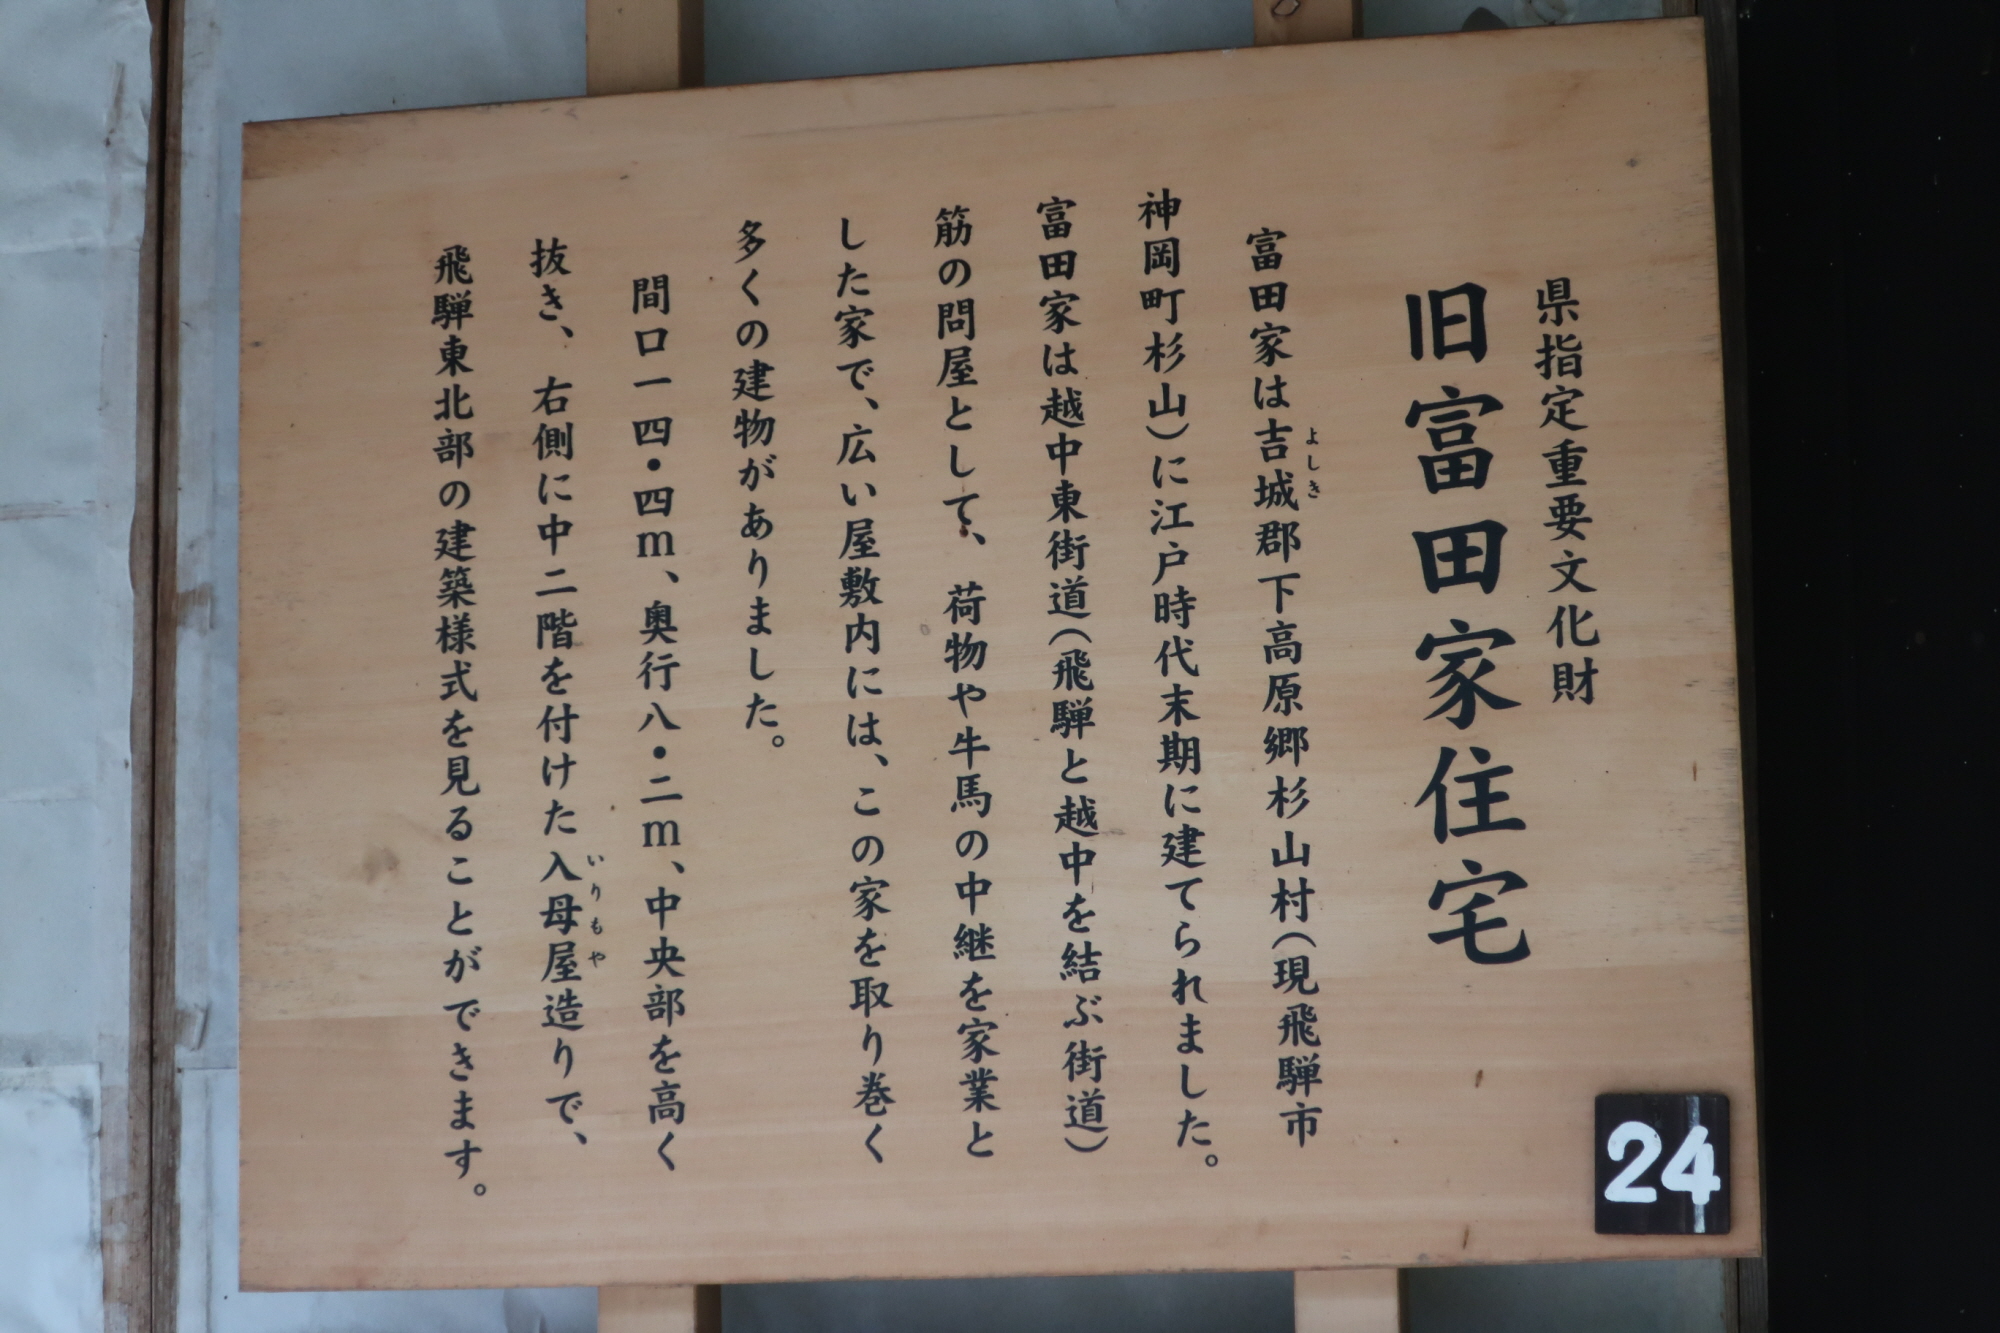 県指定重要文化財
旧富田家住宅
富田家は吉城郡下高原郷杉山村(現飛騨市
よしき
神岡町杉山)に江戸時代末期に建てられました。
富田家は越中東街道(飛騨と越中を結ぶ街道)
筋の問屋として、荷物や牛馬の中継を家業と
した家で、広い屋敷内には、この家を取り巻く
多くの建物がありました。
間口一四・四m、奥行八・二m、中央部を高く
抜き、右側に中二階を付けた入母屋造りで、
いりもや
飛騨東北部の建築様式を見ることができます。
24